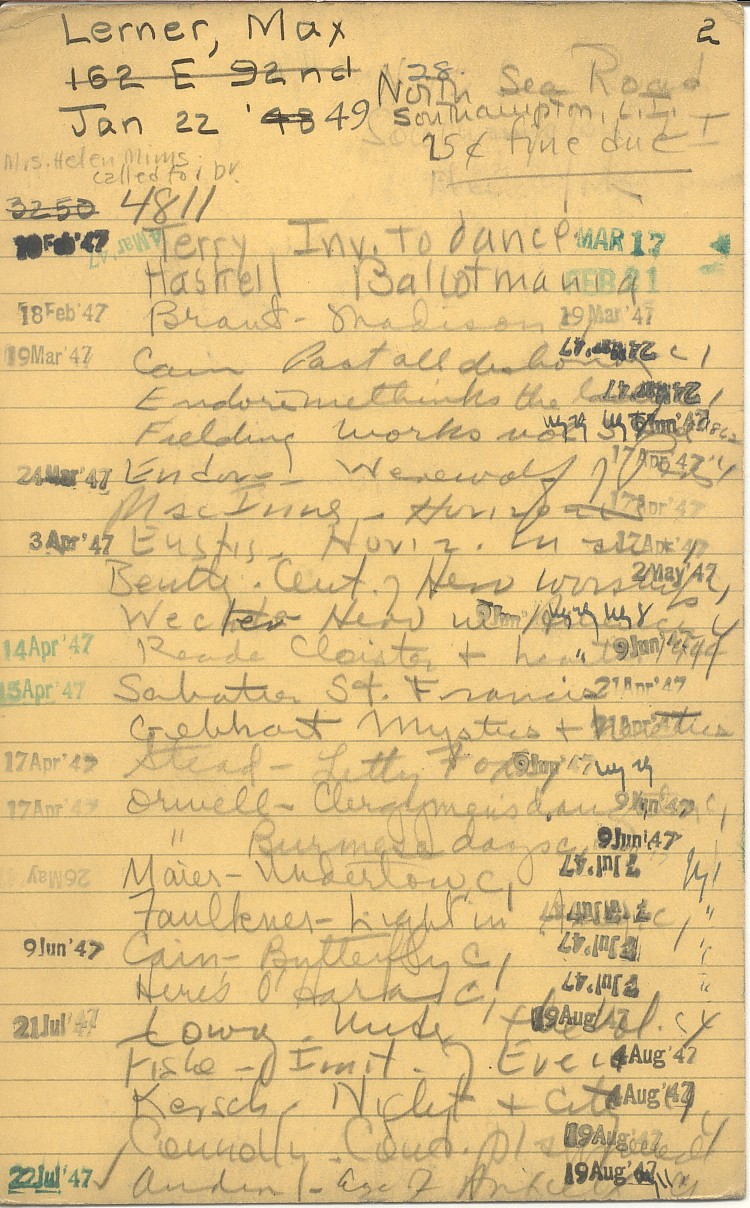 Lerner, Max 2
162 E 92nd 28 North Sea Road
Jan 22 '48 49 Southampton, L.I.
25¢ fine due
Mrs. Helen Mims
called for br.
3250 4811
10Feb'47 4Mar'47 Terry Inv. to dance MAR 17
Haskell Ballotmania FEB 21
18Feb'47 Brant - Madison 19Mar'47
19Mar'47 Cain Past all dishonor 24Mar'47 c 1
Endore methinks the 24Mar'47
Fielding Works 9Jun'47
24Mar'47 Endore Werewolf of Paris 17Apr'47
MacInnes - Horizon 17Apr'47
3Apr'47 Eustis. Horiz. 17Apr'47
Bently. Cent. of Hero worship 2May'47
Wecter Hero in America 9Jun'47
14Apr'47 Reade Cloister + hearth 9Jun'47
15Apr'47 Sabatier St. Francis 21Apr'47
Gebhart Mystics + heretics 21Apr'47
17Apr'47 Stead - Letty Fox 9Jun'47
17Apr'47 Orwell - Clergymens daughter 9Jun'47
" Burmese days c, 9Jun'47
26May'47 Maier - Undertow c, 7Jul'47
Faulkner - Light in 7Jul'47 "
9Jun'47 Cain - Butterfly c, 7Jul'47 "
Here's O'Hara c, 7Jul'47 "
21Jul'47 Lowry. Under the Vol. 19Aug'47
Fiske - Imit. of Eve 4Aug'47
Kersch. Night + City 4Aug'47
Connolly - Cond. 19Aug'47
22Jul'47 Auden - Age of 19Aug'47